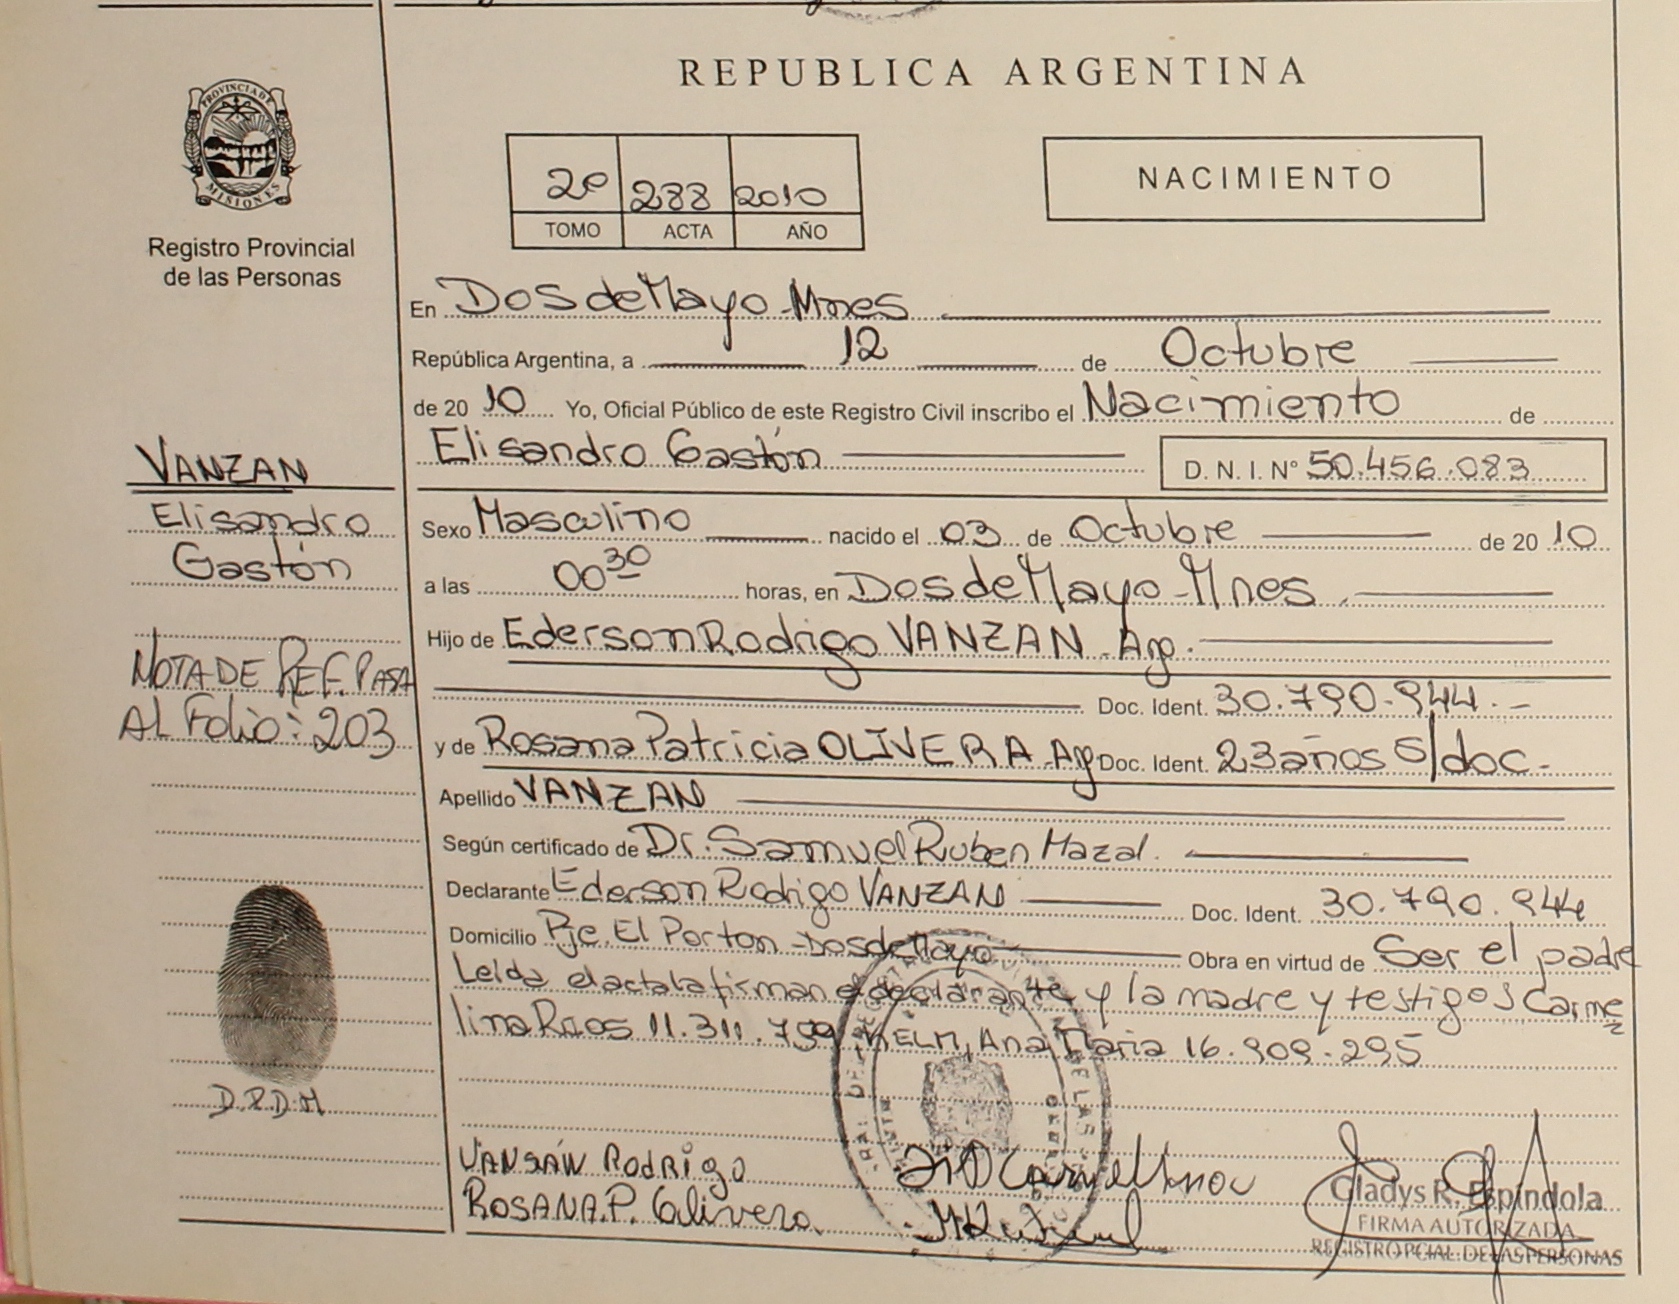 REPUBLICA ARGENTINA
PROVINCIA DE
MISIONES
Registro Provincial
de las Personas
2º 288 2010
TOMO ACTA AÑO
NACIMIENTO
En Dos de Mayo - Mnes
República Argentina, a 12 de Octubre
de 2010 Yo, Oficial Público de este Registro Civil inscribo el Nacimiento de
Elisandro Gastón D.N.I. Nº 50.456.083
VANZAN
Elisandro
Gastón
Sexo Masculino nacido el 03 de Octubre de 2010
a las 00 30 horas, en Dos de Mayo - Mnes.
Hijo de Ederson Rodrigo VANZAN - Arg.
Doc. Ident. 30.790.944.-
NOTA DE REF. PASA
AL Folio: 203
y de Rosana Patricia OLIVERA - Arg Doc. Ident. 23 años S/doc.-
Apellido VANZAN
Según certificado de Dr. Samuel Ruben Mazal.
Declarante Ederson Rodrigo VANZAN Doc. Ident. 30.790.944
Domicilio Pje. El Porton - Dos de Mayo Obra en virtud de Ser el padre
Leida el acta la firman el declarante y la madre y testigos Carme
lina 11.311.759/ KELM, Ana Maria 16.909.295
D.P.D.M
VANSÁN RODRIGO
ROSANA.P. Olivera
Gladys R. Espíndola
FIRMA AUTORIZADA
REGISTRO PCIAL. DE LAS PERSONAS